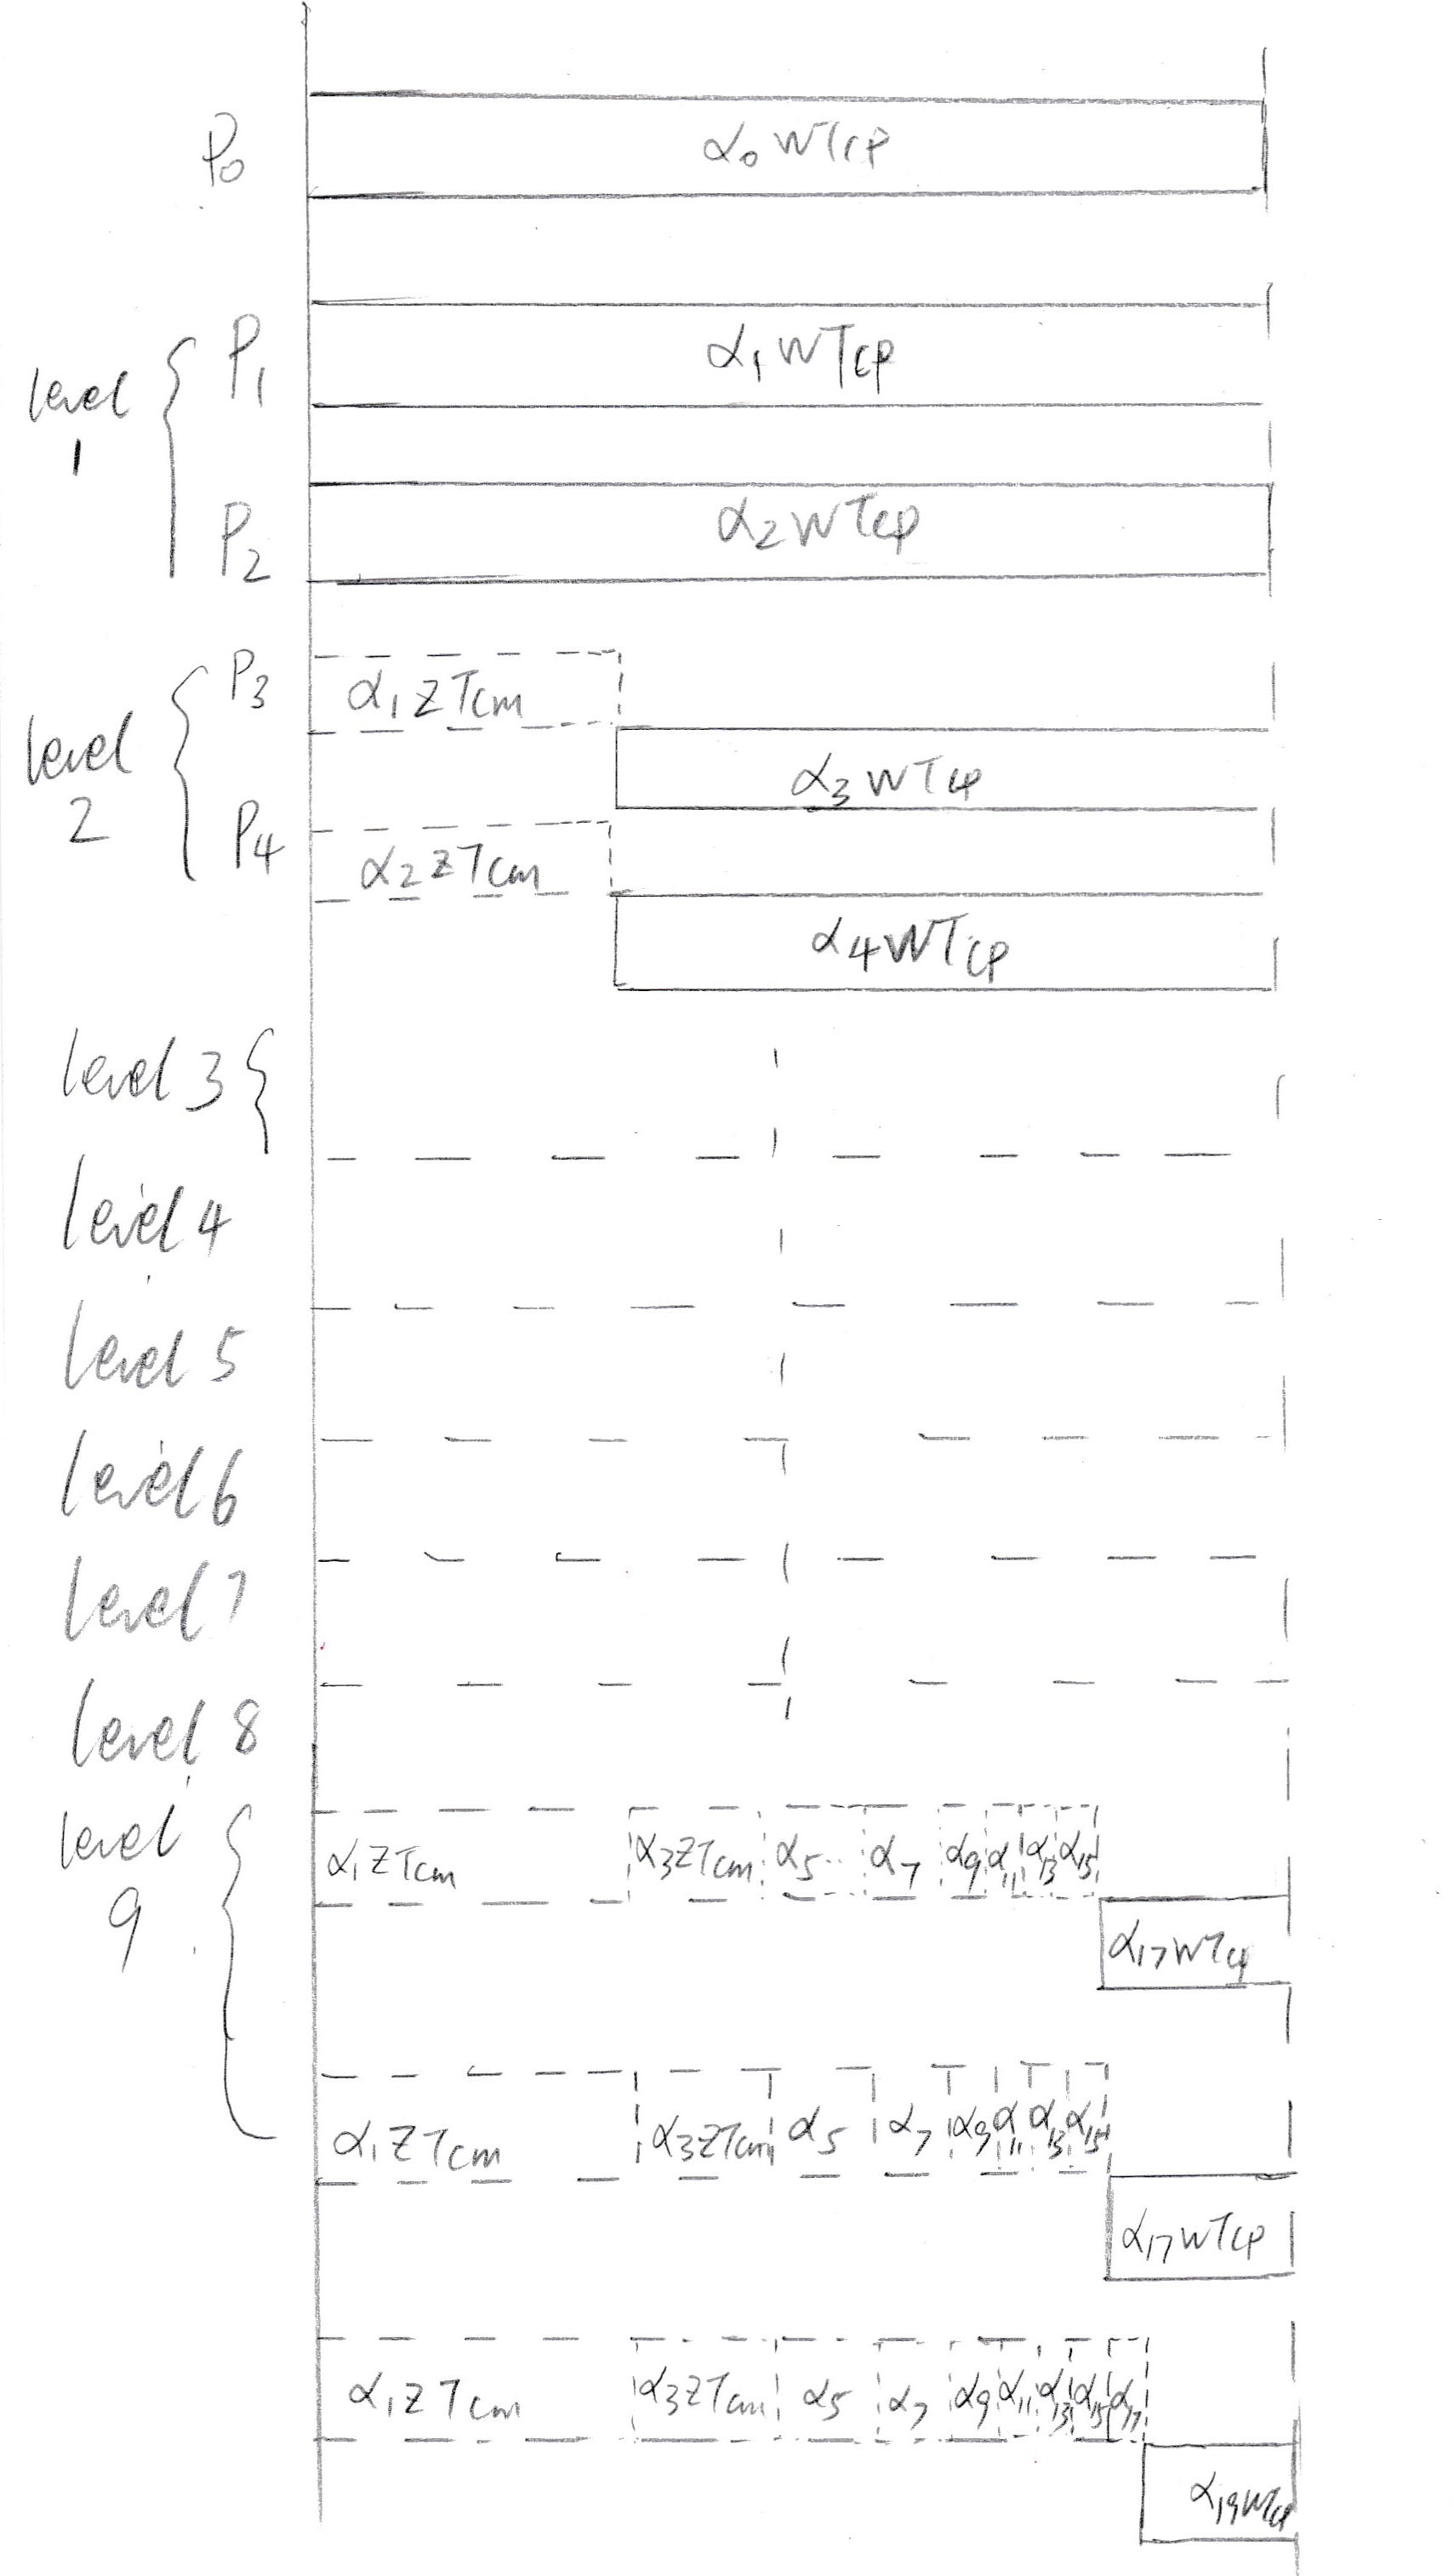 P0
α0 WTcp
level
1
P1
α1 WTcp
P2
α2 WTcp
level
2
P3
α1 Z Tcm
α3 WTcp
P4
α2 Z Tcm
α4 WTcp
level 3
level 4
level 5
level 6
level 7
level 8
level
9
α1 Z Tcm α3 Z Tcm α5 .. α7 α9 α11 α13 α15
α17 WTcp
α1 Z Tcm α3 Z Tcm α5 α7 α9 α11 α13 α15
α17 WTcp
α1 Z Tcm α3 Z Tcm α5 α7 α9 α11 α13 α15 α17
α19 WTcp